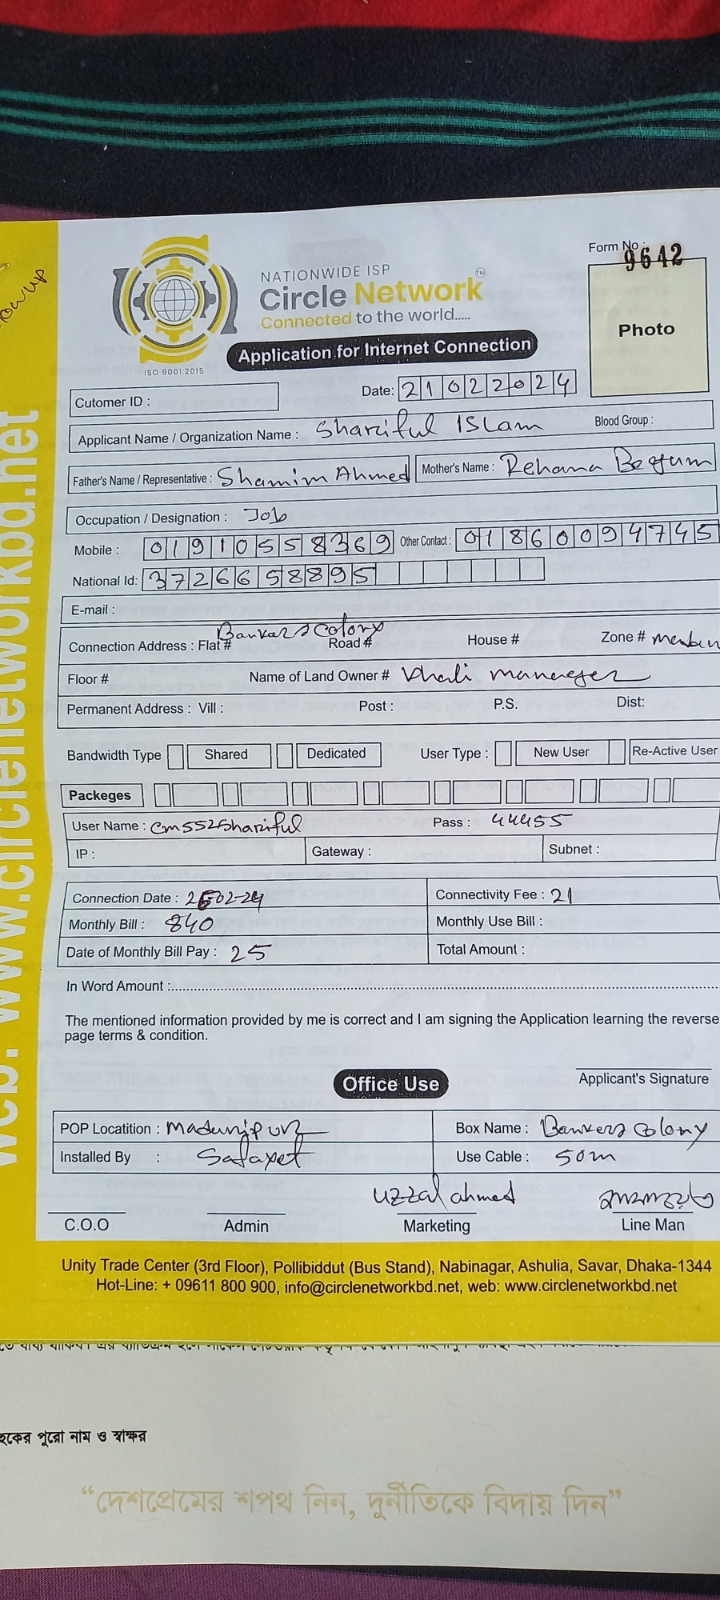 Form No.: 9642
NATIONWIDE ISP
Circle Network TM
Connected to the world.....
ISO 9001:2015
Application for Internet Connection
Photo
Cutomer ID :
Date: 21022024
Applicant Name / Organization Name : Shariful ISLam Blood Group :
Father's Name / Representative : Shamim Ahmed Mother's Name : Rehana Begum
Occupation / Designation : Job
Mobile : 01910558369 Other Contact : 01860094745
National Id: 3726658895
E-mail :
Connection Address : Flat # Bankers Colony Road # House # Zone #
Floor # Name of Land Owner # Khali manager
Permanent Address : Vill : Post : P.S. Dist:
Bandwidth Type Shared Dedicated User Type : New User Re-Active User
Packeges
User Name : cm552Shariful Pass : 44455
IP : Gateway : Subnet :
Connection Date : 2 02-24 Connectivity Fee : 21
Monthly Bill : 840 Monthly Use Bill :
Date of Monthly Bill Pay : 25 Total Amount :
In Word Amount :
The mentioned information provided by me is correct and I am signing the Application learning the reverse
page terms & condition.
Applicant's Signature
Office Use
POP Locatition : Box Name : Bankers Colony
Installed By : Safayet Use Cable : 50m
uzzal ahmed
C.O.O Admin Marketing Line Man
Unity Trade Center (3rd Floor), Pollibiddut (Bus Stand), Nabinagar, Ashulia, Savar, Dhaka-1344
Hot-Line: + 09611 800 900, info@circlenetworkbd.net, web: www.circlenetworkbd.net
web: www.circlenetworkbd.net
পুরো নাম ও স্বাক্ষর
“দেশপ্রেমের শপথ নিন, দুর্নীতিকে বিদায় দিন”